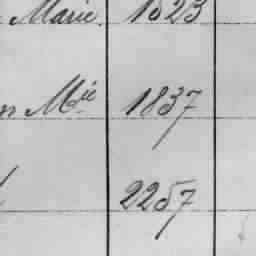 Marie. 1823
n Mie 1837
2257